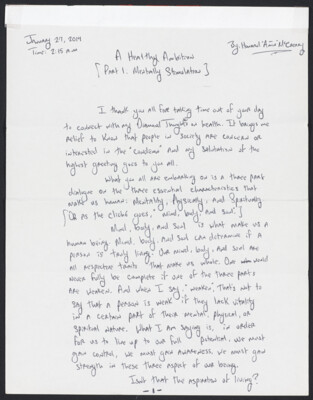 January 27, 2019
Time: 2:15 a.m
By: Howard
A Healthy Ambition
[Part 1. Mentally Stimulation]
I thank you all for taking time out of your day
to connect with my thoughts on health. It brings me
relief to know that people in society are
interested in the and my salutation of the
highest greeting goes to you all.
What you all are embarking on is a three part
dialogue on the three essential characteristics that
make us human: Mentality, Physically, and Spiritually
[Or as the cliché goes, "mind, body, and soul."]
Mind, body, and soul is what make us a
human being. Mind, body, and soul can determine if a
person is truly living. Our mind, body, and soul are
all respective traits that make us whole. One would
never fully be complete if one of the three parts
are weaken. And when I say, "weaken", that's not to
say that a person is weak if they lack vitality
in a certain part of their mental, physical, or
spiritual nature. What I am saying is, in order
for us to live up to our full potential, we must
gain control, we must gain awareness, we must gain
strength in these three aspect of our being.
Isn't that the aspiration of living?
-1-